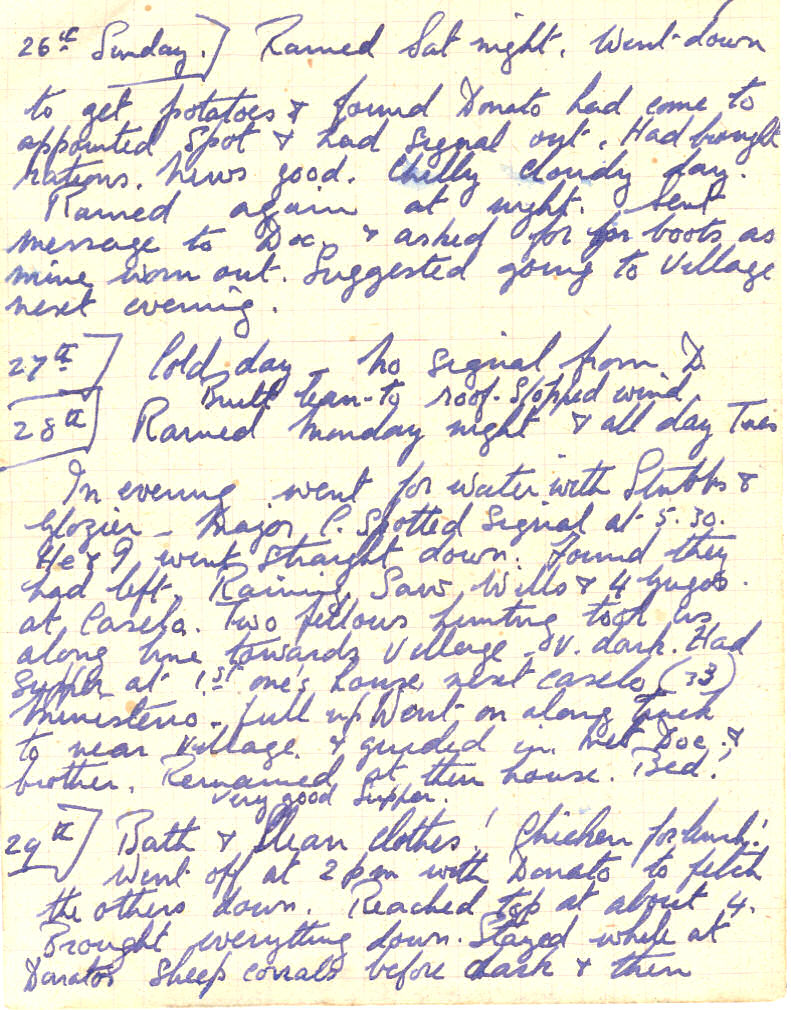 26th Sunday. Rained Sat night. Went down
to get potatoes & found Donato had come to
appointed spot & had signal out. Had brought
rations. News good. Chilly cloudy day.
Rained again at night. Sent
message to Doc. & asked for for boots as
mine worn out. Suggested going to village
next evening.
27th Cold day – No signal from D.
Built lean-to roof. Stopped wind
28th Rained Monday night & all day Tues
In evening went for water with Stubbs &
Glozier – Major C. spotted signal at 5.30.
He & I went straight down. Found they
had left. Raining. Saw Wills & 4 Yugos.
at Caselo. Two fellows hunting took us
along line towards village – V. dark. Had
supper at 1st one's house next caselo (33)
Ministerio – full up. Went on along track
to near village & guided in. Met Doc. &
brother. Remained at their house. Bed.
Very good supper.
29th Bath & clean clothes! Chicken for lunch!
Went off at 2 pm with Donato to fetch
the others down. Reached top at about 4.
Brought everything down. Stayed while at
Donatos sheep corrals before dark & then